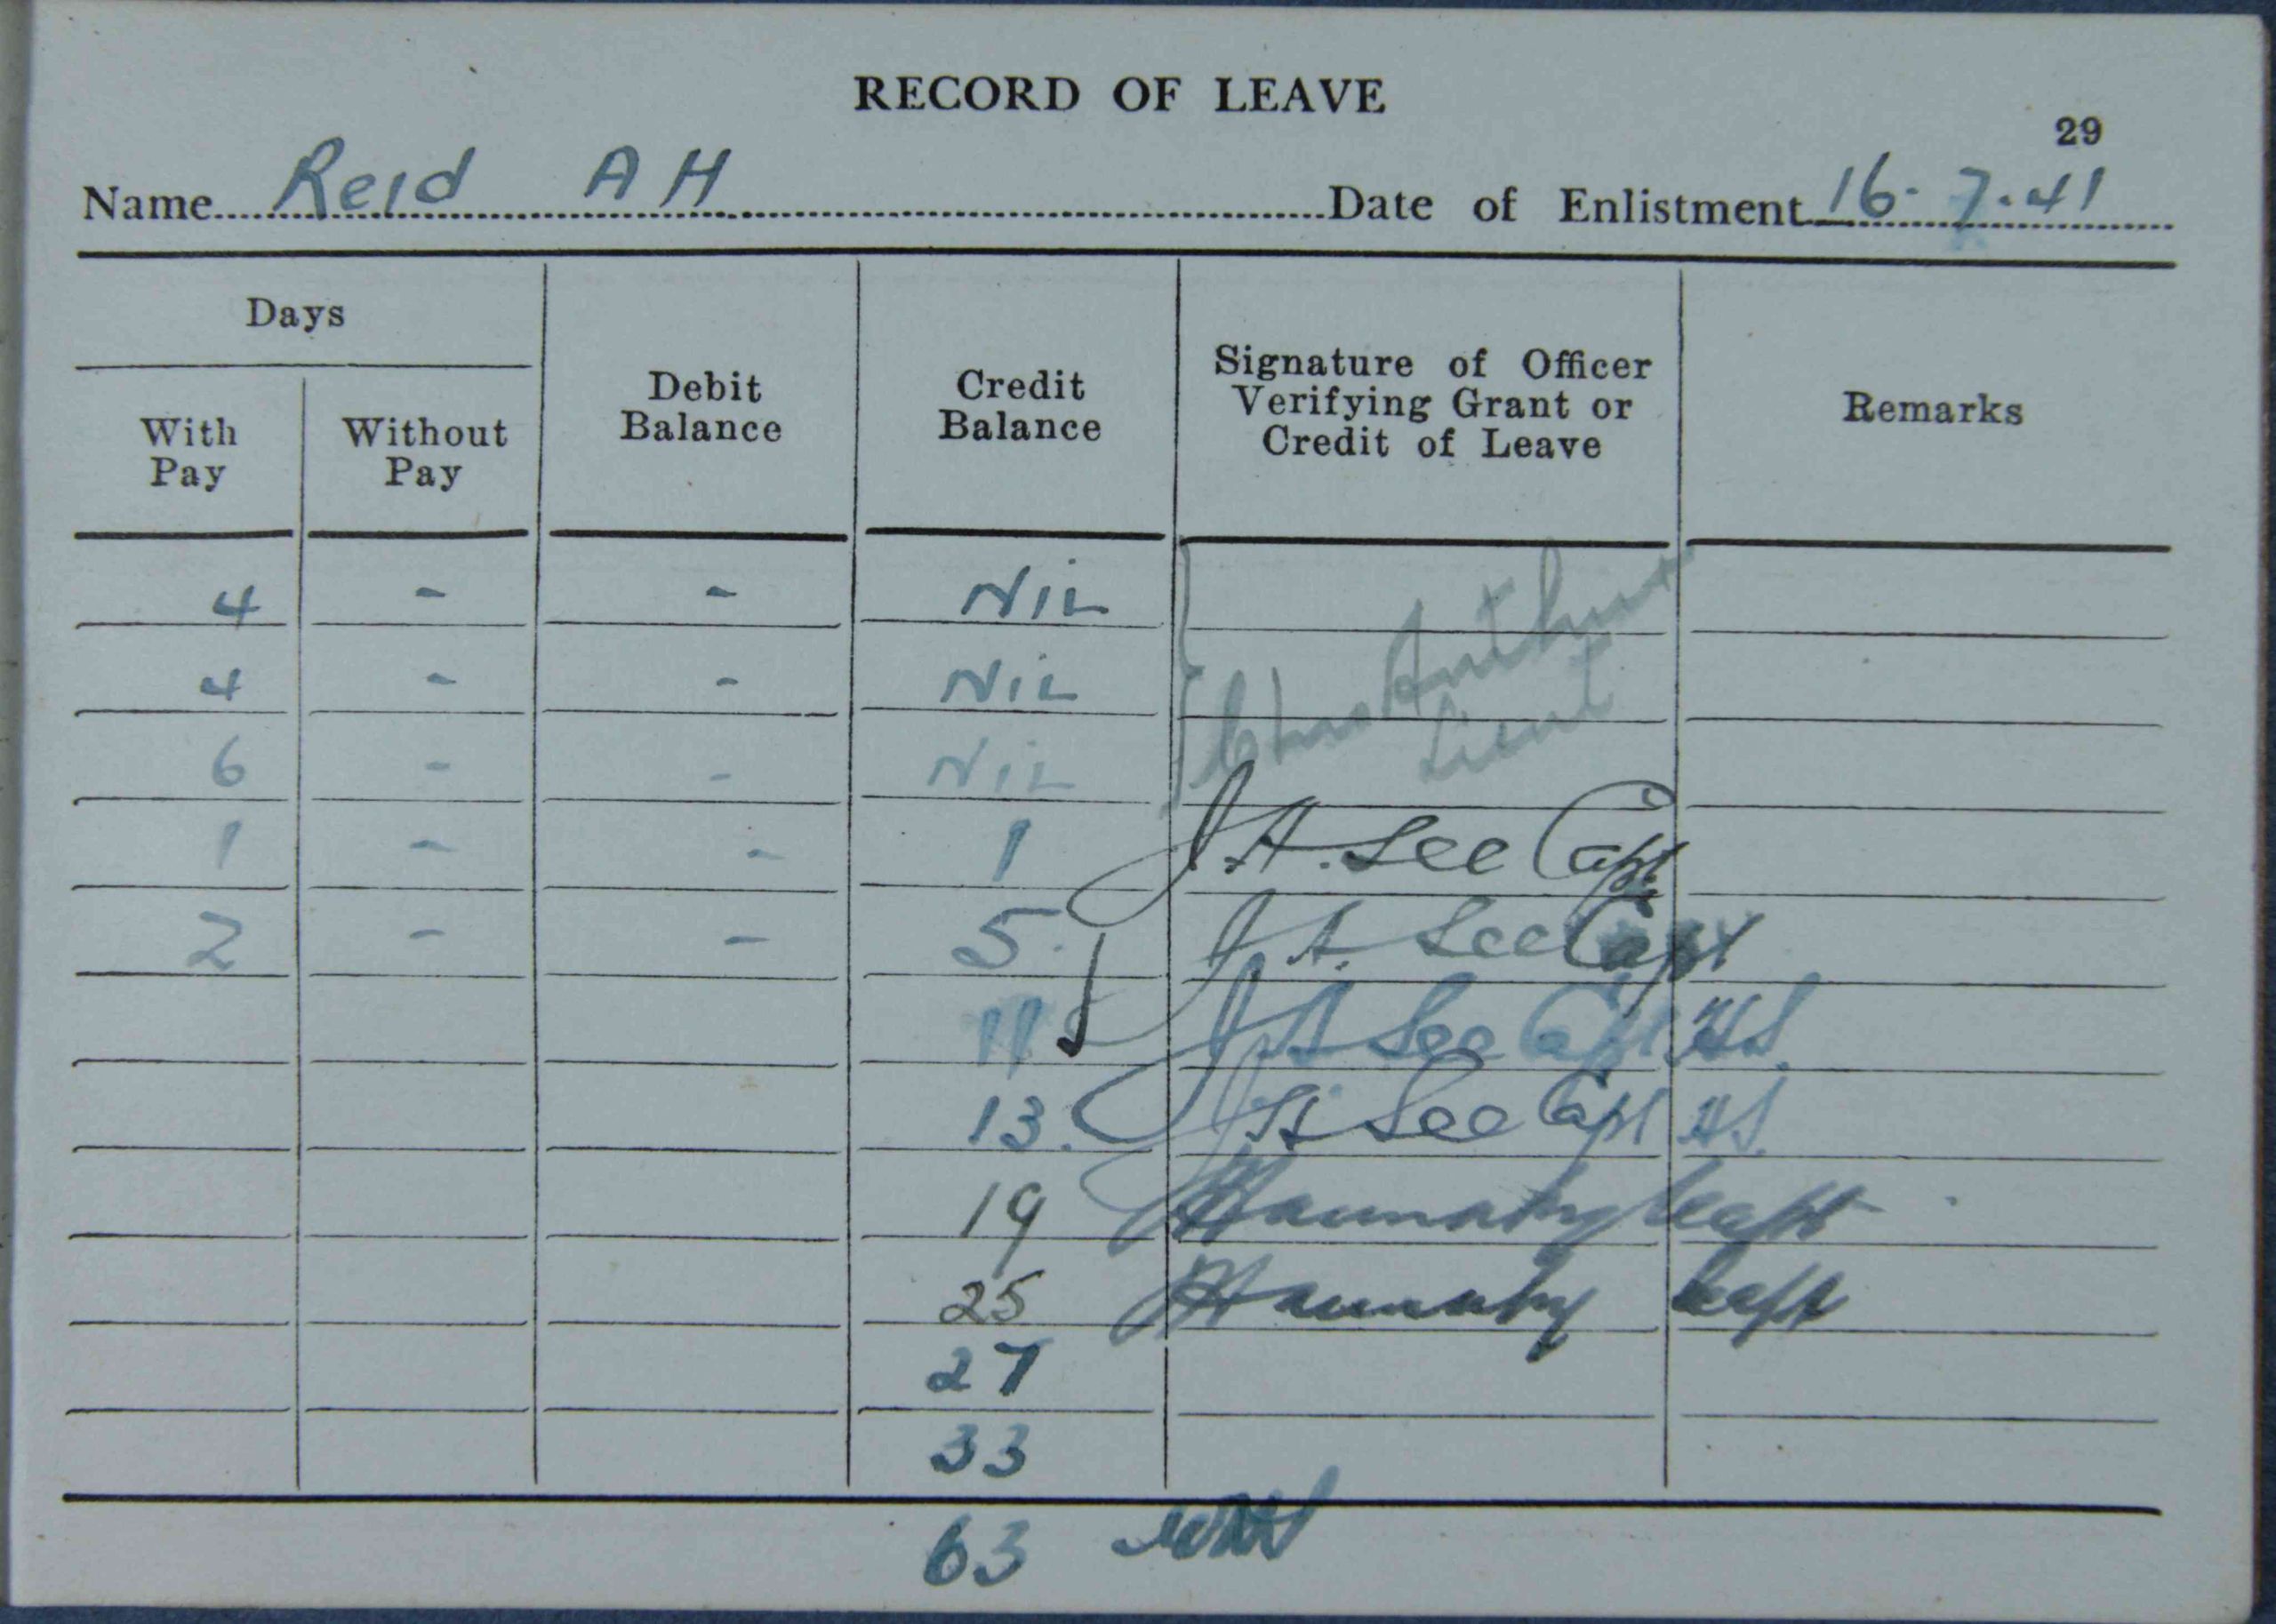 RECORD OF LEAVE
29
Name Reid A H Date of Enlistment 16-7-41
Days
With Pay
Without Pay
Debit Balance
Credit Balance
Signature of Officer Verifying Grant or Credit of Leave
Remarks
4 - - Nil
4 - - Nil Chas Arthur Lieut
6 - - Nil
1 - - 1 J.A. See Capt
2 - - 5. J A. See Capt
11 J A See Capt
13. J A See Capt
19 Capt
25 Capt
27
33
63